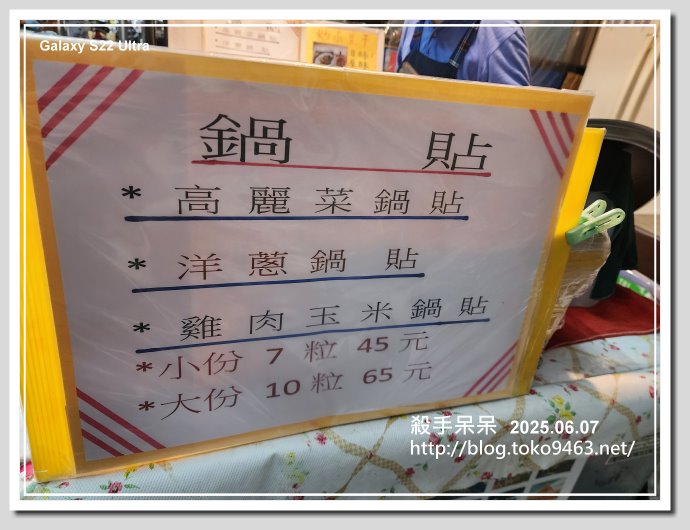 Galaxy S22 Ultra
鍋 貼
* 高麗菜鍋貼
* 洋蔥鍋貼
* 雞肉玉米鍋貼
* 小份 7 粒 45 元
* 大份 10 粒 65 元
殺手呆呆 2025.06.07
http://blog.toko9463.net/